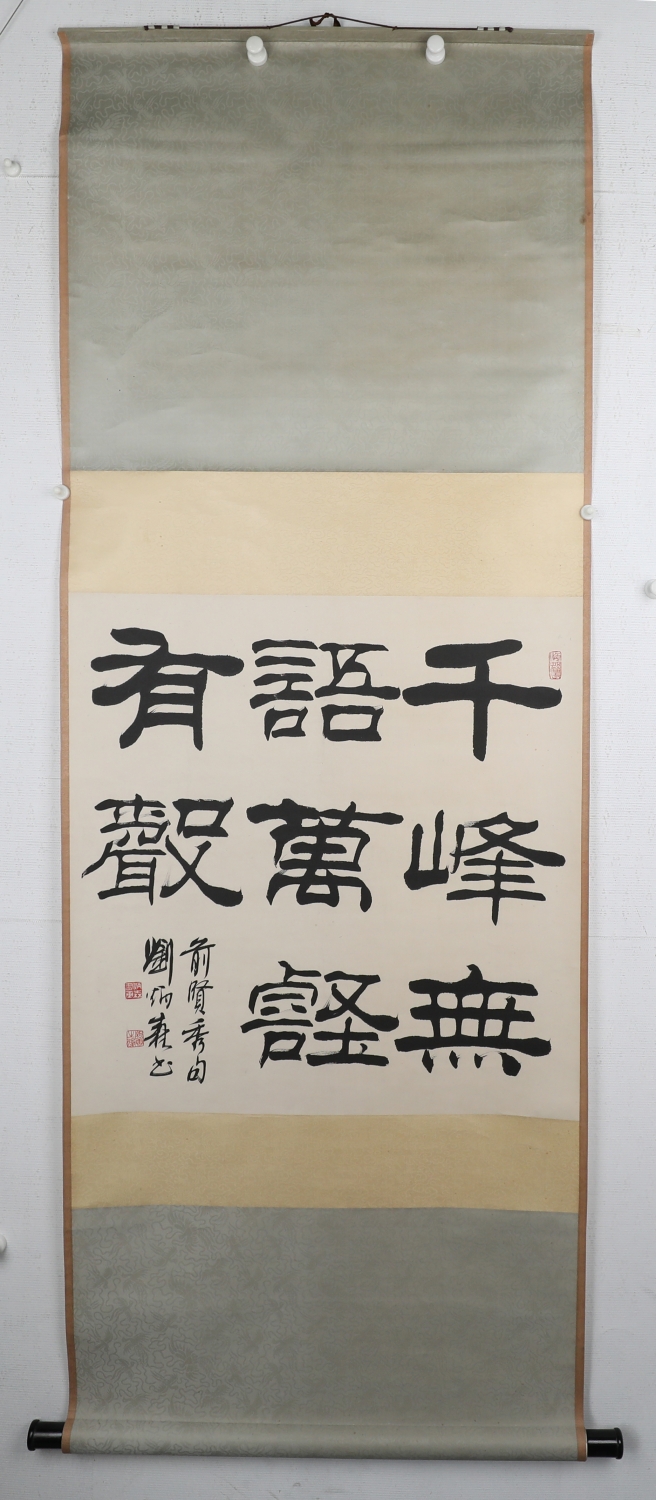 千峰無
語萬壑
有聲
前賢秀句
劉炳森書